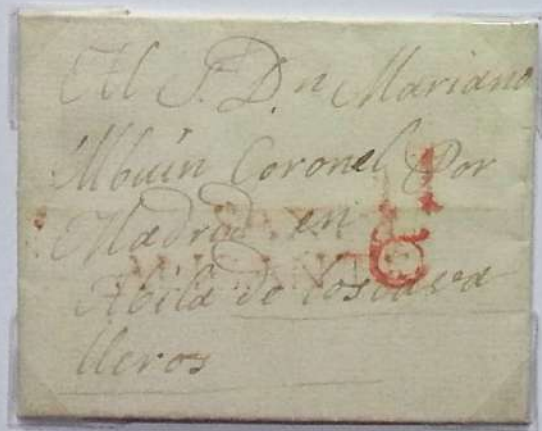 Al S. D.n Mariano
Coronel Por
Madrid en
Abila de los Cava
lleros